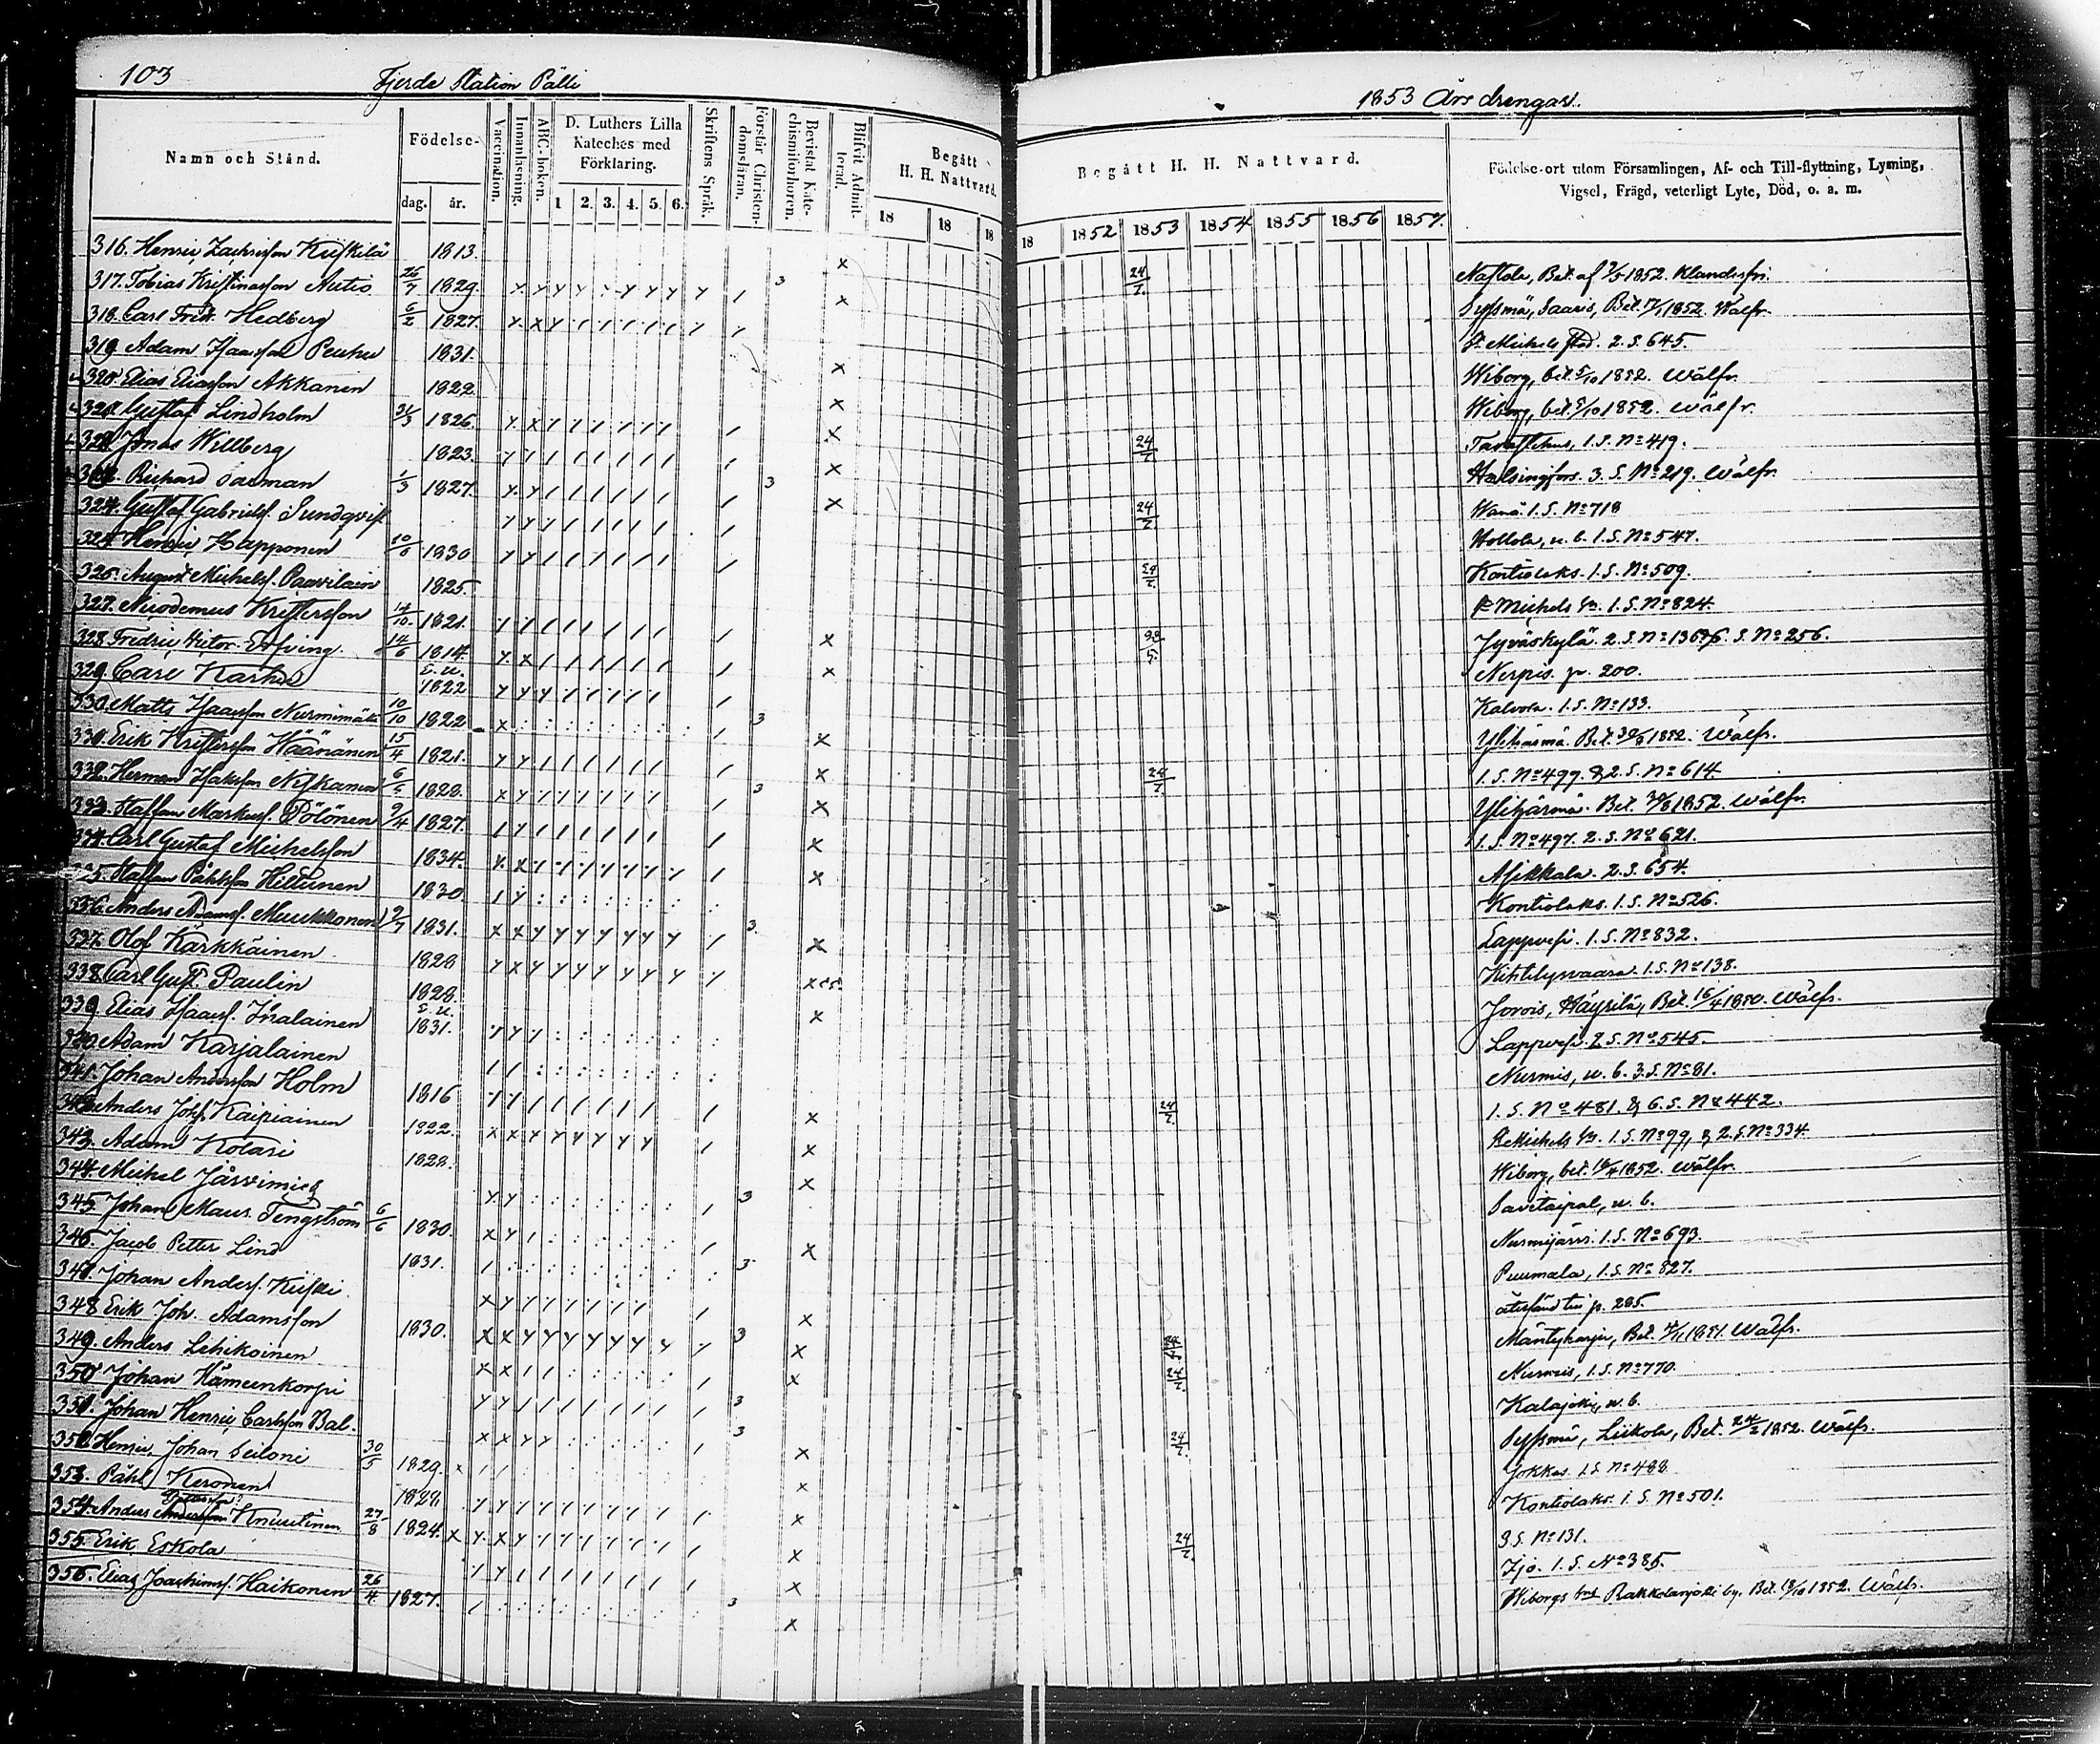 103
Fjerde Station Pälli
Namn och Stånd.
Födelse-
dag. år.
Vaccination.
Innanläsning.
ABC-boken.
D. Luthers Lilla
Kateches med
Förklaring.
1 2. 3. 4. 5. 6.
Skriftens Språk.
Förstår Christen-
domsläran.
Bevistat Kate-
chismiförhören.
Blifvit Admit-
terad.
Begått
H. H. Nattvard.
18 18 18
316. Henric Zachrisson Kiiskilä 1813.
317. Tobias Kristinasson Autio 26/7 1829.
318. Carl Fredr. Hedberg 6/2 1827.
319. Adam Isaacsson Peuhu 1831.
320. Elias Eliasson Akkanen 1822.
321. Gustaf Lindholm 31/3 1826.
322. Jonas Willberg 1823.
Richard Salman 1/3 1827.
324. Gustaf Gabrielss. Sundqvist
325. Henric Happonen 10/6 1830
326. August Michelss. Paavilain 1825.
327. Nicodemus Kristersson 14/10 1821.
328. Fredric Victor 14/6 1814.
329. Carl Karhu E.u. 1822
330. Matts Isaacsson Nurmimäki 10/10 1822
331. Erik Kristersson Häänänen 15/4 1821.
332. Herman Isaksson Niskanen 6/5 1828.
333. Staffan Markuss. Pölönen 9/4 1827.
334. Carl Gustaf Michelsson 1834.
335. Staffan Påhlsson Hiltunen 1830.
336. Anders Adamss. Muukkonen 9/7 1831.
337. Olof Kärkkäinen 1828
338. Carl Gust. Paulin 1828.
339. Elias Isaacss. Ihalainen E.u. 1831.
340. Adam Karjalainen
341. Johan Andersson Holm 1816
342. Anders Johs. Kaipiainen 1822.
343. Adam Kolari 1828.
344. Michel Järvimies
345. Johan Maur. Tengström 6/6 1830.
346. Jacob Petter Lind 1831.
347. Johan Anders. Kiiski
348 Erik Joh. Adamsson 1830.
349. Anders Lehikoinen
350 Johan Hämeenkorpi
351. Johan Henric Carlsson Bal.
352. Henric Johan Seiloni 30/5 1829.
353. Påhl Keronen 1828
354. Anders Andersson Knuutinen 27/8 1824.
355. Erik Eskola
356. Elias Joachimss. Haikonen 26/4 1827.
1853 Års drengar.
Begått H. H. Nattvard.
18 1852 1853 1854 1855 1856 1857.
Födelse-ort utom Församlingen, Af- och Till-flyttning, Lysning,
Vigsel, Frägd, veterligt Lyte, Död, o. a. m.
Nastola, Bet. af 9/5 1852. Klanderfri.
Sysmä, Saaris, Bet. 1852. Wälfr.
St Michels stad. 2. S. 645.
Wiborg, bet. 5/10 1852. Wälfr.
Wiborg, bet. 5/10 1852. Wälfr.
Tavastehus, 1. S. No 419.
Helsingfors. 3. S. No 219. Wälfr.
Wanå. 1. S. No 718
Hollola, u. b. 1. S. No 547.
Kontiolaks. 1. S. No 509.
St Michels sn. 1. S. No 824.
Jyväskylä. 2. S. No 136 & 6. S. No 256.
Nerpis. p. 200.
Kalvola. 1. S. No 133.
Ylihärmä. Bet. 30/8 1852. Wälfr.
1. S. No 499. & 2. S. No 614
Ylihärmä. Bet. 30/8 1852. Wälfr.
1. S. No 497. 2. S. No 621.
Asikkala. 2. S. 654.
Kontiolaks. 1. S. No 526.
Lappvesi. 1. S. No 832.
Kihtelysvaara. 1. S. No 138.
Jorois, Häyrilä, Bet. 16/4 1850. Wälfr.
Lappvesi. 2 S. No 545.
Nurmis, u. b. 3. S. No 81.
1. S. No 481. & 6. S. No 442.
St Michels sn. 1. S. No 99, & 2. S. No 334
Wiborg, bet. 1852. Wälfr.
Savitaipal, u. b.
Nurmijärvi. 1. S. No 693.
Puumala, 1. S. No 827.
återsänd till p. 285.
Mäntyharju, Bet. 1851. Wälfr.
Nurmis, 1. S. No 770.
Kalajoki, u. b.
Sysmä, Liikola, Bet. 24/2 1852. Wälfr.
Jokkas. 1 S. No 488
Kontiolaks. 1. S. No 501.
3 S. No 131.
Ijo. 1. S. No 385.
Wiborgs Rakkolanjoki by. Bet. 18/10 1852. Wälfr.